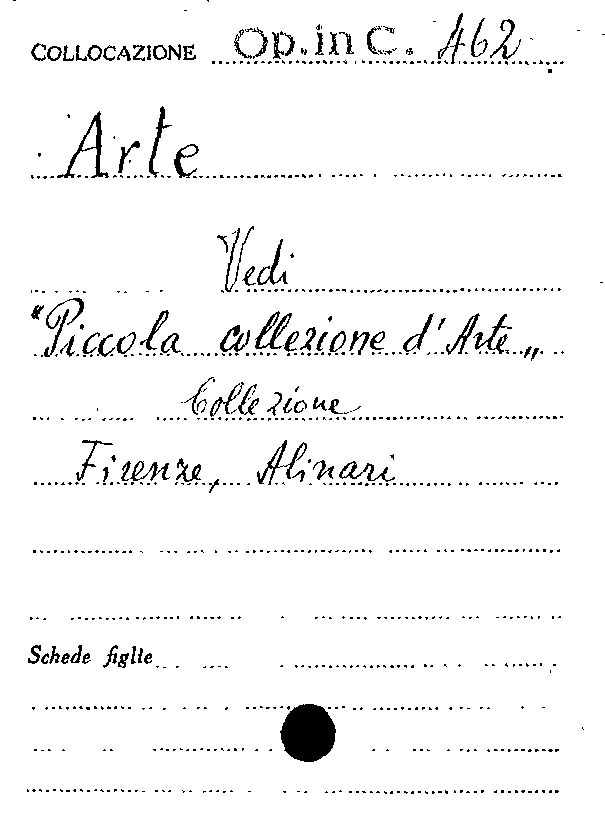 COLLOCAZIONE Op. in C. 462
Arte
Vedi
"Piccola collezione d'Arte„
Collezione
Firenze, Alinari
Schede figlie